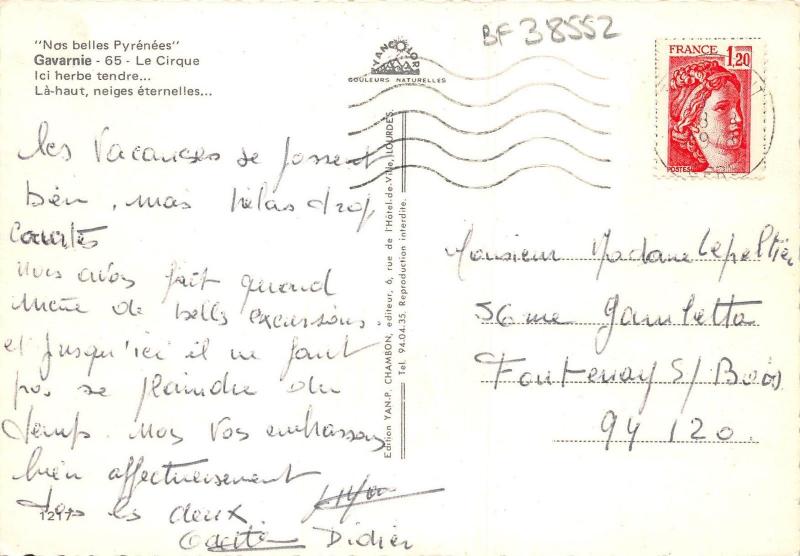 "Nos belles Pyrénées"
Gavarnie - 65 - Le Cirque
Ici herbe tendre...
Là-haut, neiges éternelles...
YANCOLOR
COULEURS NATURELLES
BF 38552
FRANCE 1,20
POSTES
Les Vacances se passent
bien, mais hélas trop
Courtes
Nous avons fait quand
même de belles excursions.
et jusqu'ici il ne faut
pas se plaindre du
temps. Nous vous embrassons
bien affectueusement
tous les deux
Didier
1217
Edition YAN-P. CHAMBON, editeur, 6, rue de l'Hôtel-de-Ville, LOURDES
Tel. 94.04.35. Reproduction interdite.
Monsieur Madame Lepeltier
56 rue Gambetta
Fontenay S/ Bois
94120.